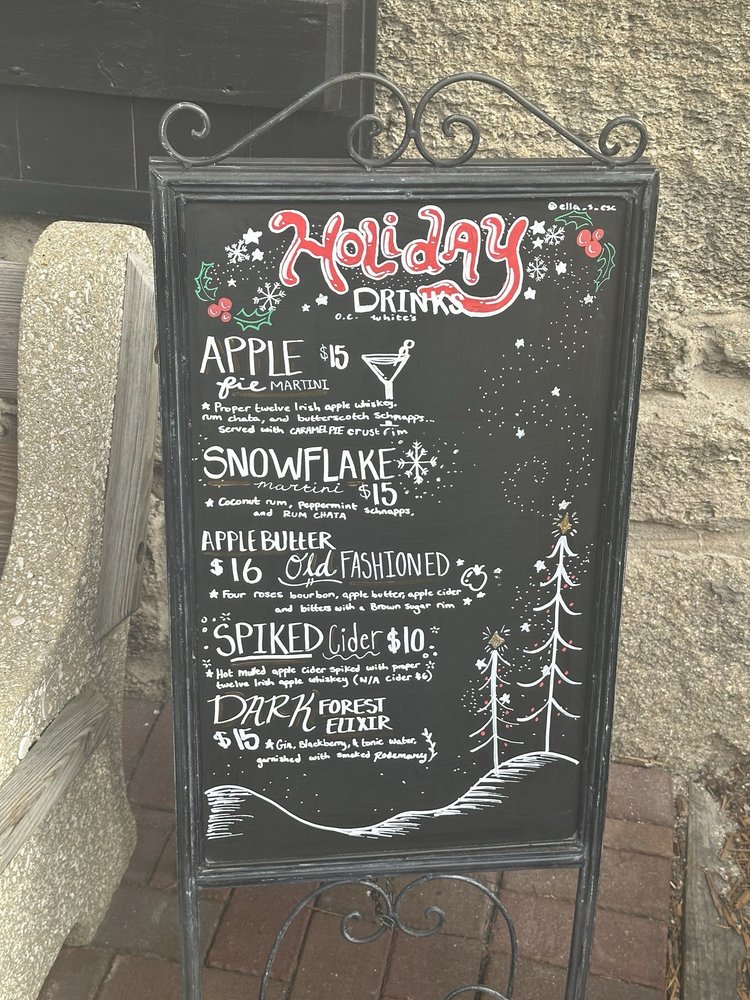 @ella_s_esc
Holiday
DRINKS
O.C. White's
APPLE $15
pie MARTINI
★ Proper twelve Irish apple whiskey,
rum chata, and butterscotch Schnapps...
Served with CARAMEL PIE crust rim
SNOWFLAKE
martini $15
★ Coconut rum, Peppermint Schnapps,
and RUM CHATA
APPLE BUTTER
$16 Old FASHIONED
★ Four roses bourbon, apple butter, apple cider
and bitters with a Brown sugar rim
SPIKED Cider $10
★ Hot mulled apple cider spiked with proper
twelve Irish apple whiskey (N/A Cider $6)
DARK FOREST
ELIXIR
$15 ★ Gin, Blackberry, & tonic water,
garnished with smoked Rosemary